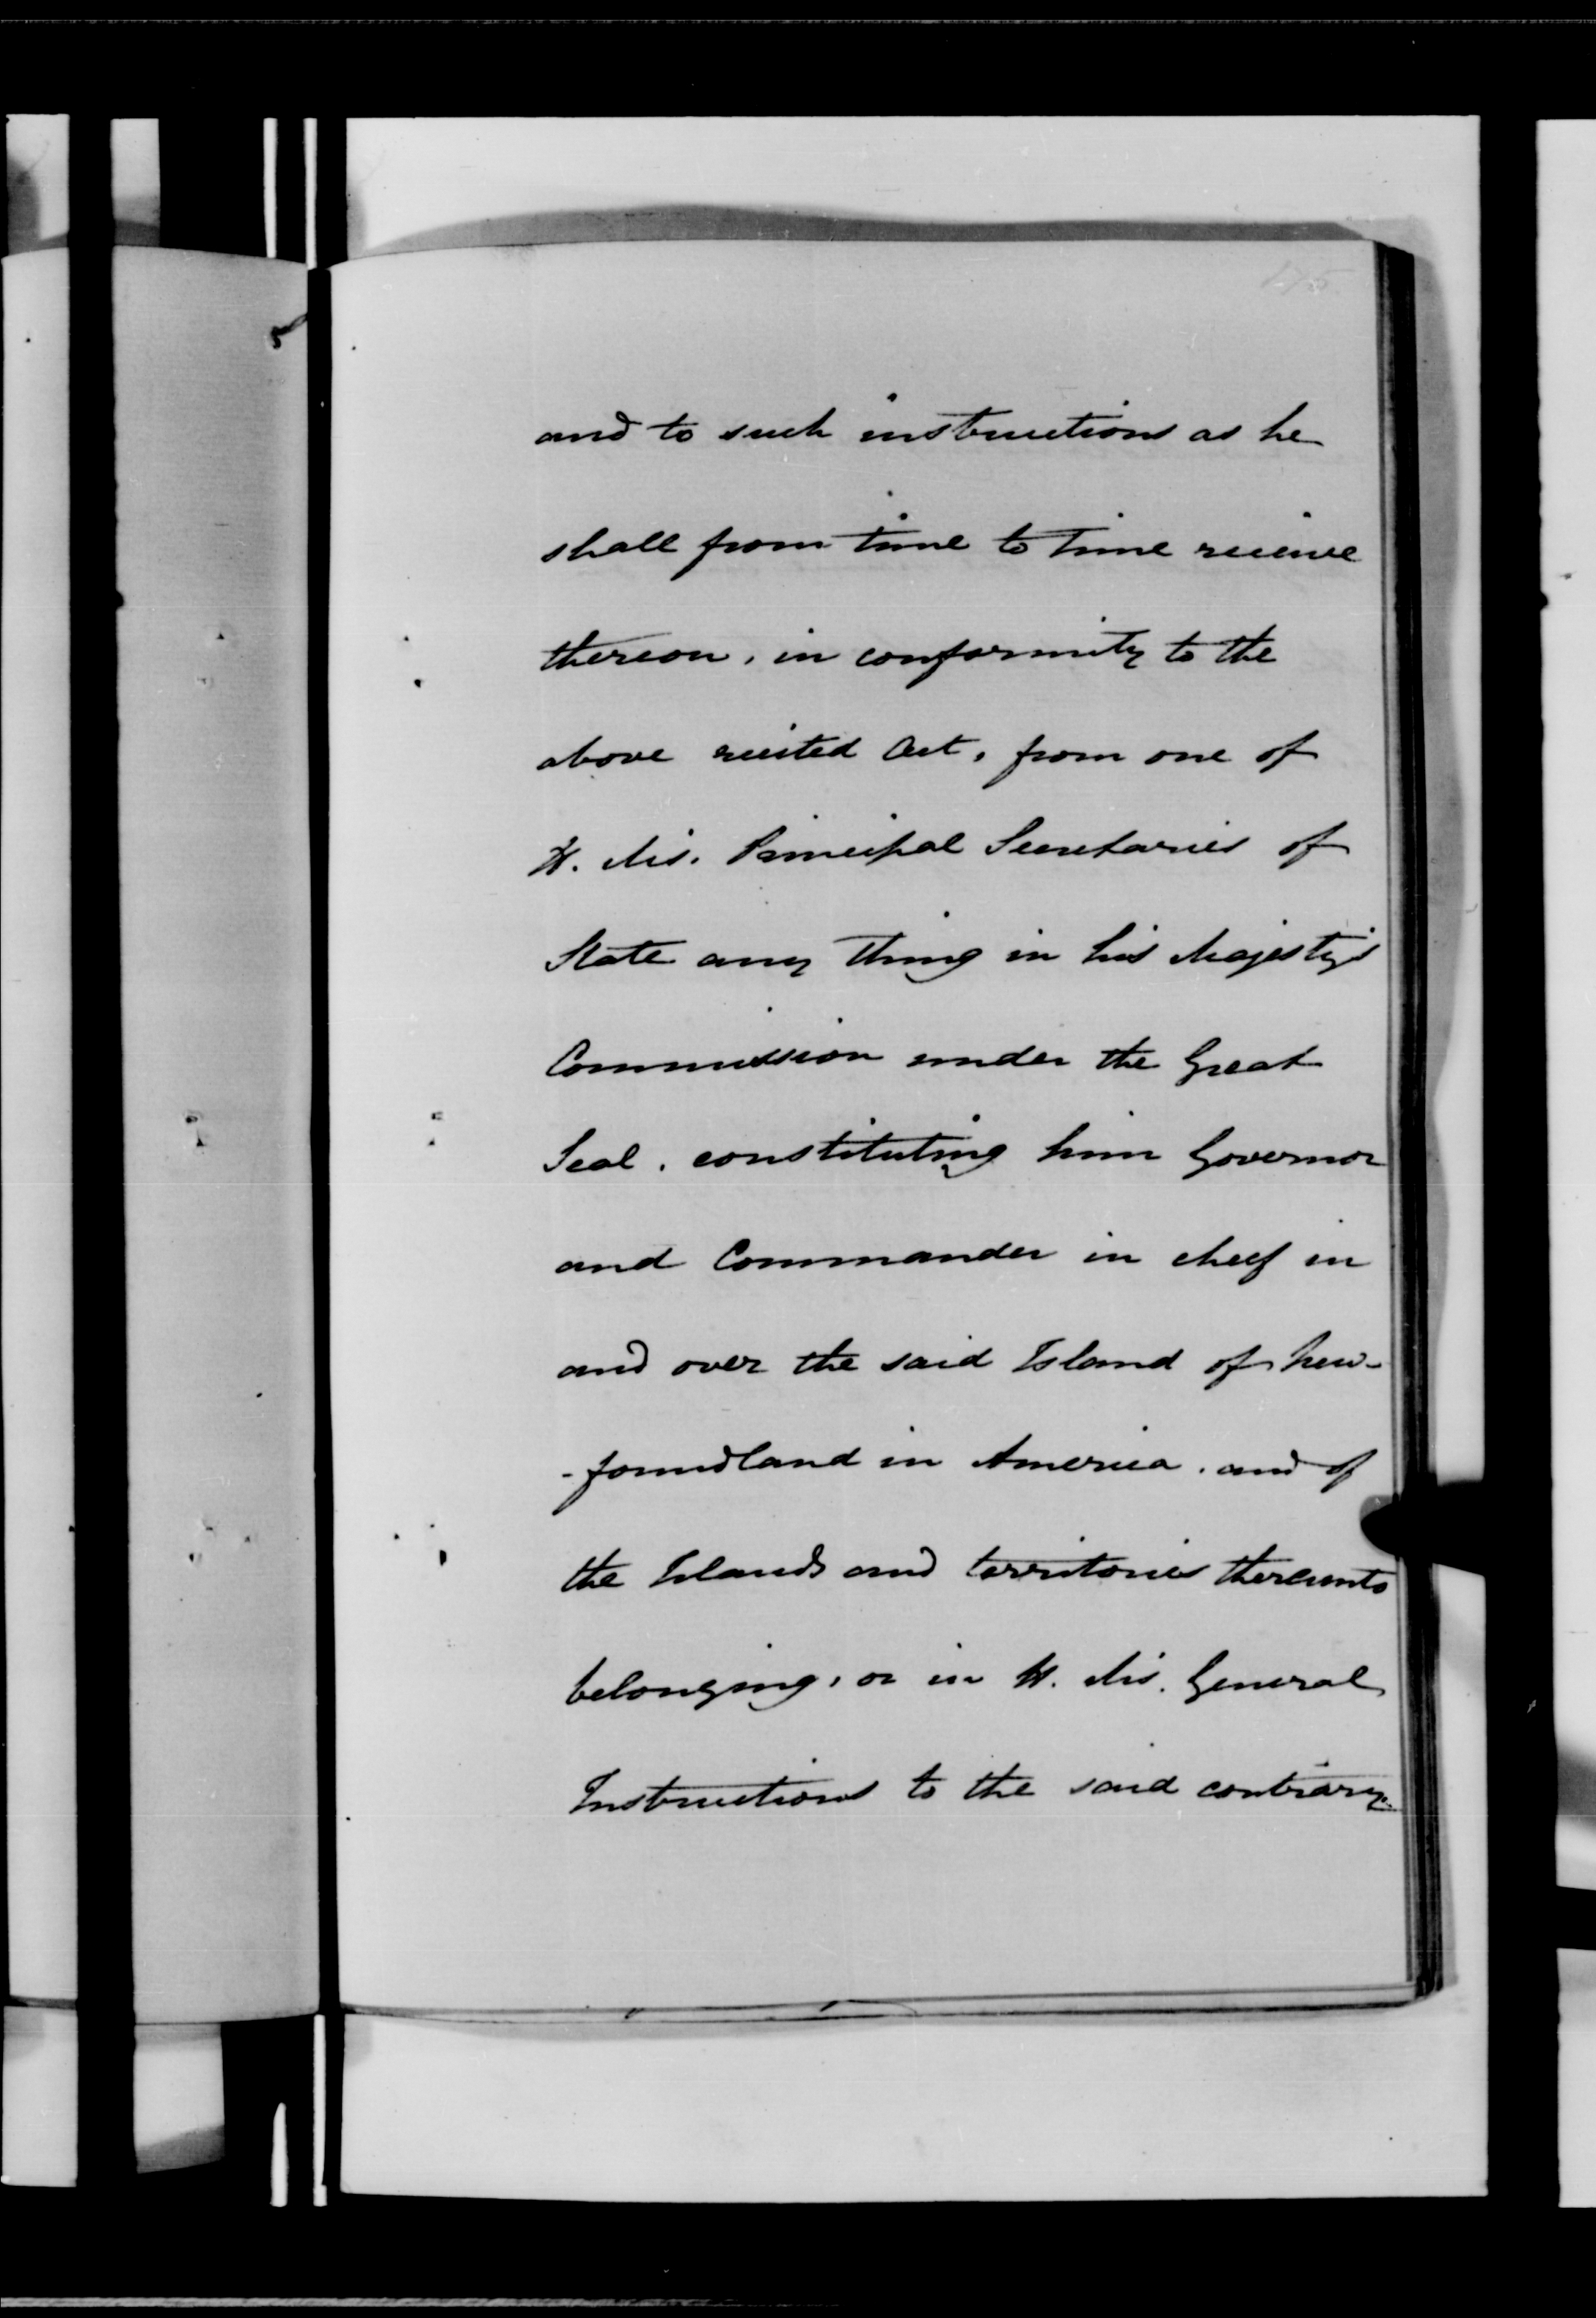 and to such instructions as he
shall from time to time receive
thereon, in conformity to the
above recited Act, from one of
H. M's. Principal Secretaries of
State any thing in his Majesty's
Commission under the Great
Seal, constituting him Governor
and Commander in chief in
and over the said Island of New-
-foundland in America, and of
the Islands and territories thereunto
belonging, or in H. M's. General
Instructions to the said contrary.